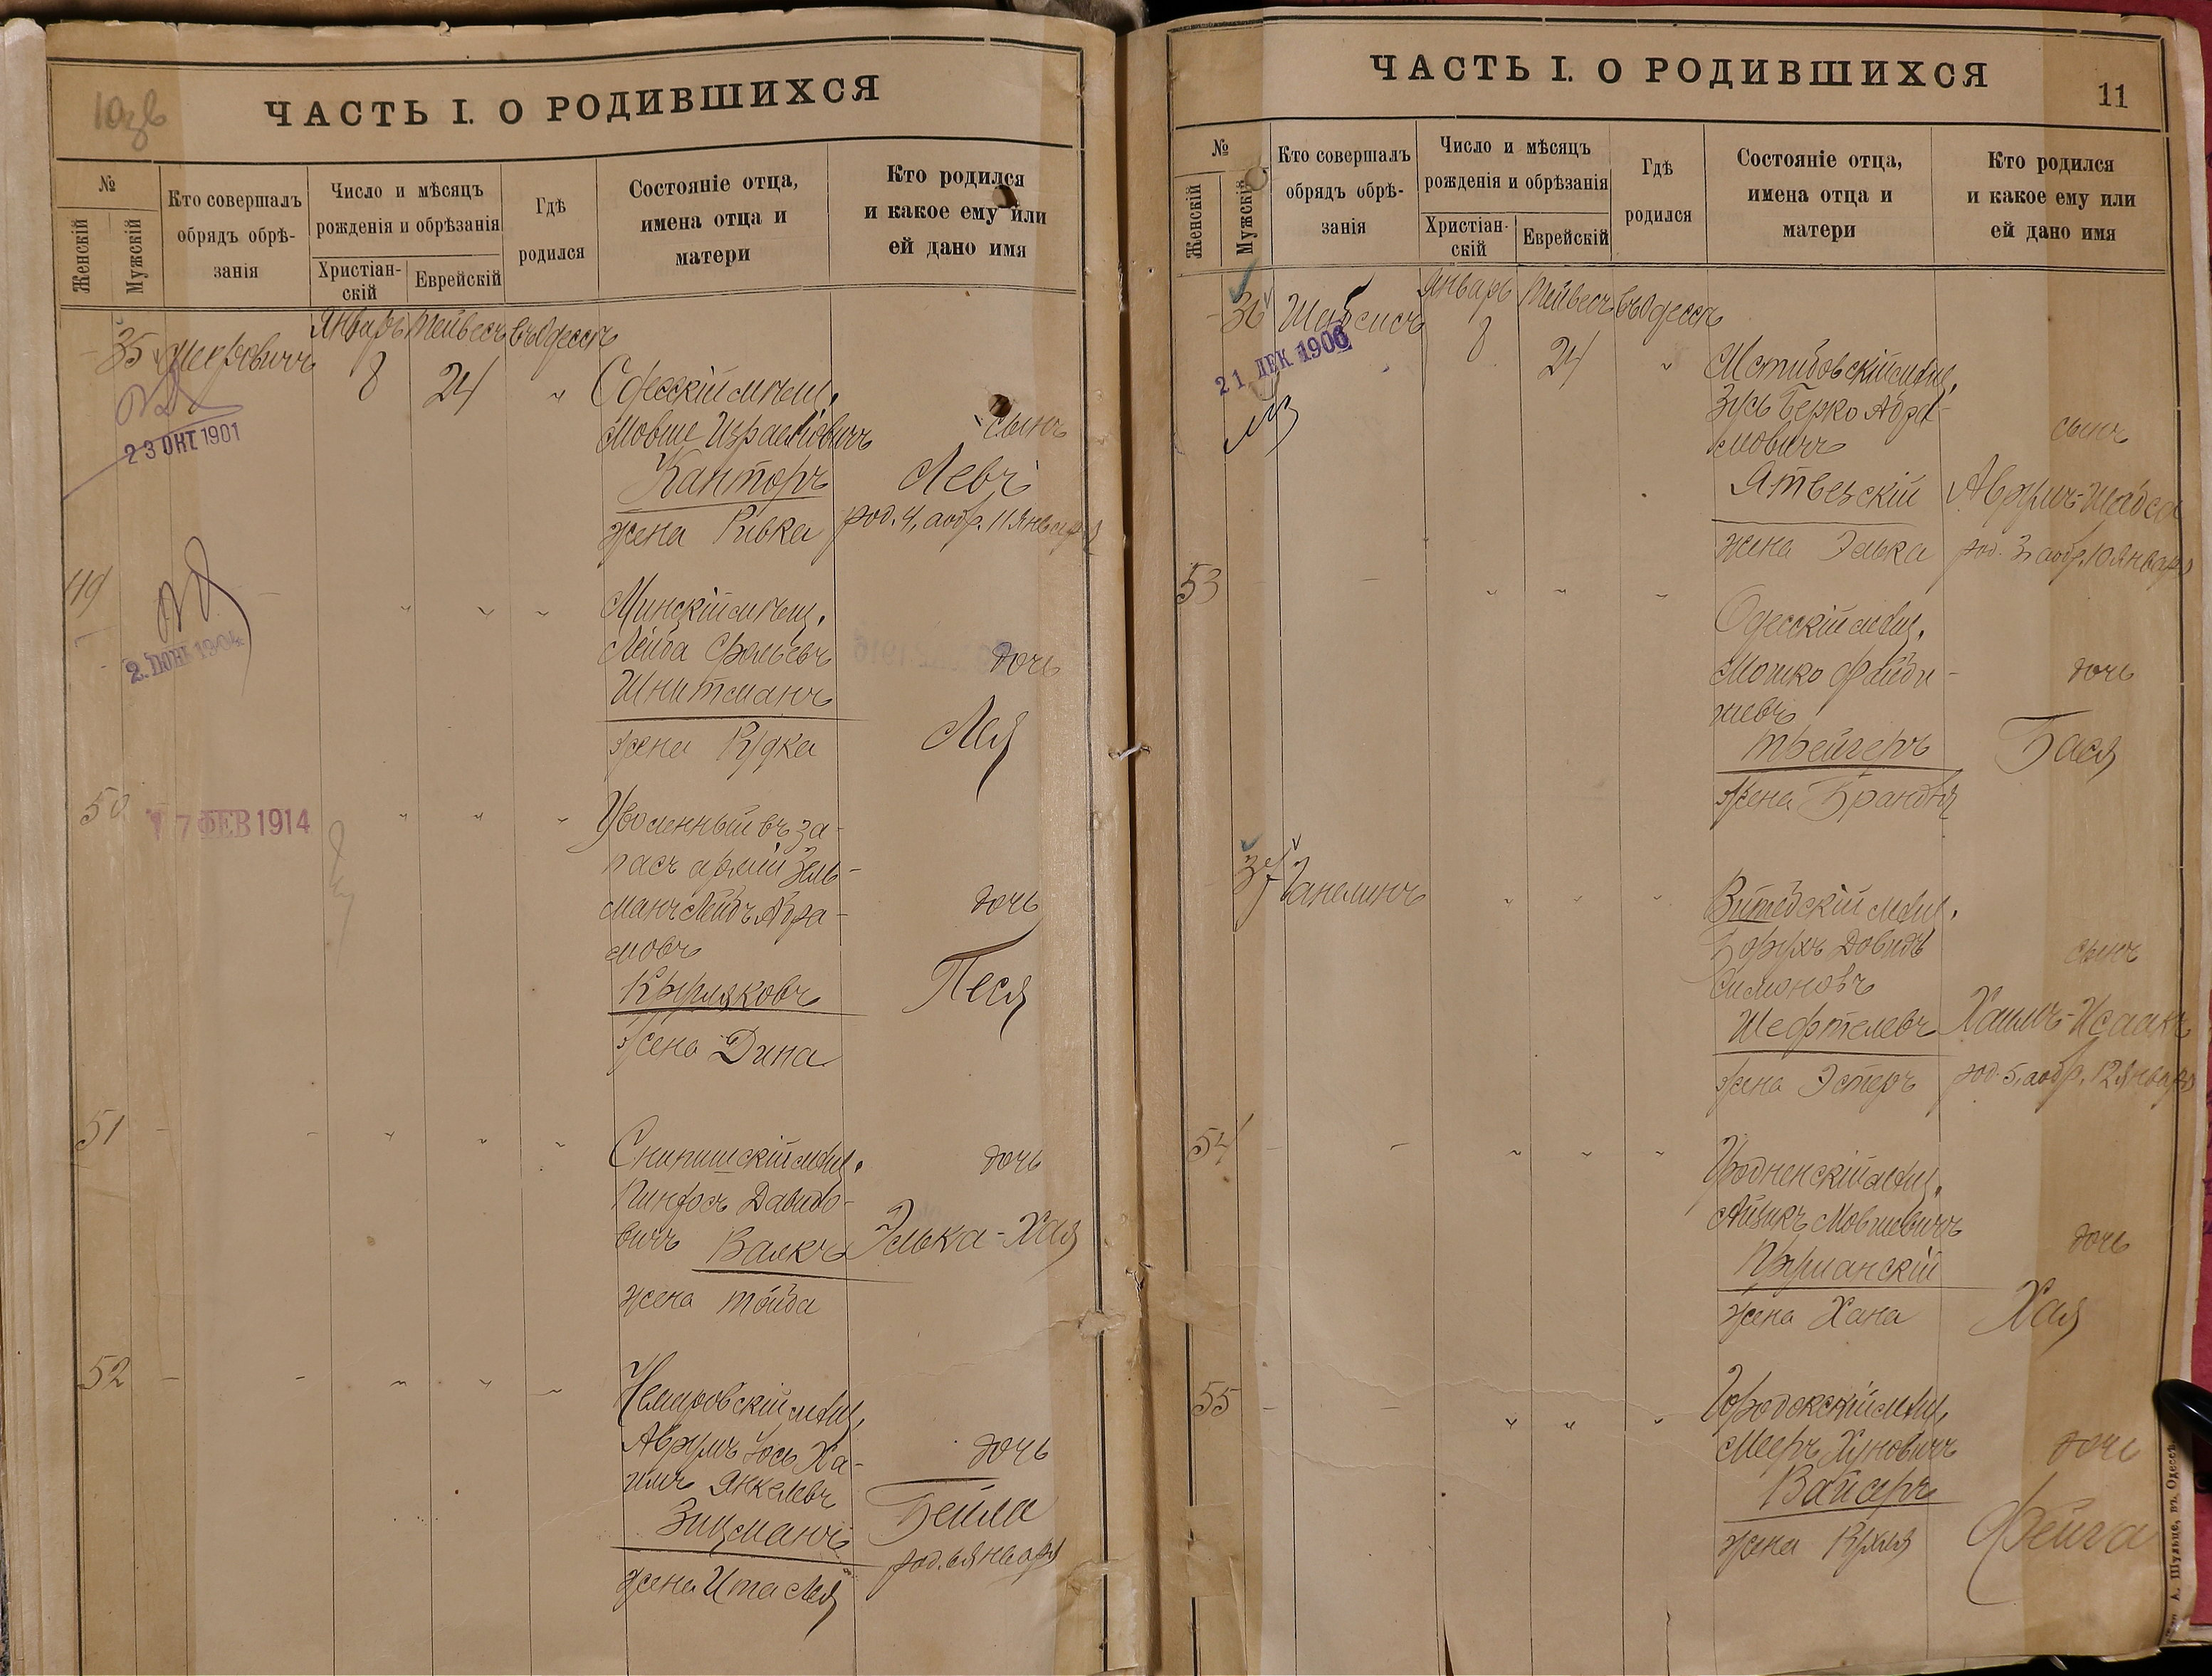 ЧАСТЬ I. О РОДИВШИХСЯ
№
Женскій
Мужскій
Кто совершалъ
обрядъ обрѣ-
занія
Число и мѣсяцъ
рожденія и обрѣзанія
Христіан-
скій
Еврейскій
Гдѣ
родился
Состояніе отца,
имена отца и
матери
Кто родился
и какое ему или
ей дано имя
35
Январь Тейвесъ въ Одессѣ
8 24 "
Одесскій мѣщ.
Мовше Израелевичъ
Канторъ
жена Ривка
сынъ
Левъ
род. 4, а обр. 11 января
23 ОКТ 1901
49
Минскій мѣщ.
Лейба Сролевъ
Шнитманъ
жена
дочь
Лея
50
17 ФЕВ 1914
Уволенный въ за-
пасъ арміи Зель-
манъ Лейбъ Абра-
мовъ
жена Дина
дочь
Песя
51
Снипишскій мѣщ.
Пинхосъ Давидо-
вичъ Валкъ
жена Тойба
дочь
Элька-Хая
52
Немировскій мѣщ.
Аврумъ Іось Ха-
имъ Янкелевъ
Зицманъ
жена Ита Лея
дочь
Бейла
род. 6 января
ЧАСТЬ I. О РОДИВШИХСЯ
11
№
Женскій
Мужскій
Кто совершалъ
обрядъ обрѣ-
занія
Число и мѣсяцъ
рожденія и обрѣзанія
Христіан-
скій
Еврейскій
Гдѣ
родился
Состояніе отца,
имена отца и
матери
Кто родился
и какое ему или
ей дано имя
36 Шабсисъ
Январь Тейвесъ въ Одессѣ
8 24 "
21 ДЕК 1906
Мстибовскій мѣщ.
Зусь Берко Абра-
мовичъ
Ятвескій
жена Элька
сынъ
Аврумъ-Шабса
род. 3, а обр. 10 января
53
Одесскій мѣщ.
Мошко Файви-
шевъ
Твейгеръ
жена Брандля
дочь
Бася
37 Ганелинъ
Витебскій мѣщ.
Борухъ Довидъ
Симоновъ
Шефтелевъ
жена Эстеръ
сынъ
Хаимъ-Исаакъ
род. 5, а обр. 12 января
54
Гродненскій мѣщ.
Айзикъ Мовшевичъ
жена Хана
дочь
Хая
55
Городокскій мѣщ.
Мееръ Хуновичъ
Вайсеръ
жена Рухля
дочь
Фейга
А. Шульце, въ Одессѣ